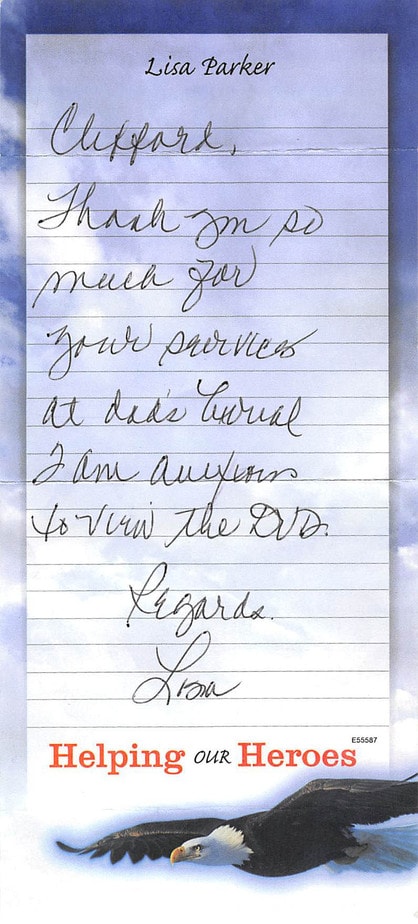 Lisa Parker
Clifford,
Thank you so
much for
your services
at dad's burial
I am anxious
to view the DVD.
Regards.
Lisa
E55587
Helping OUR Heroes